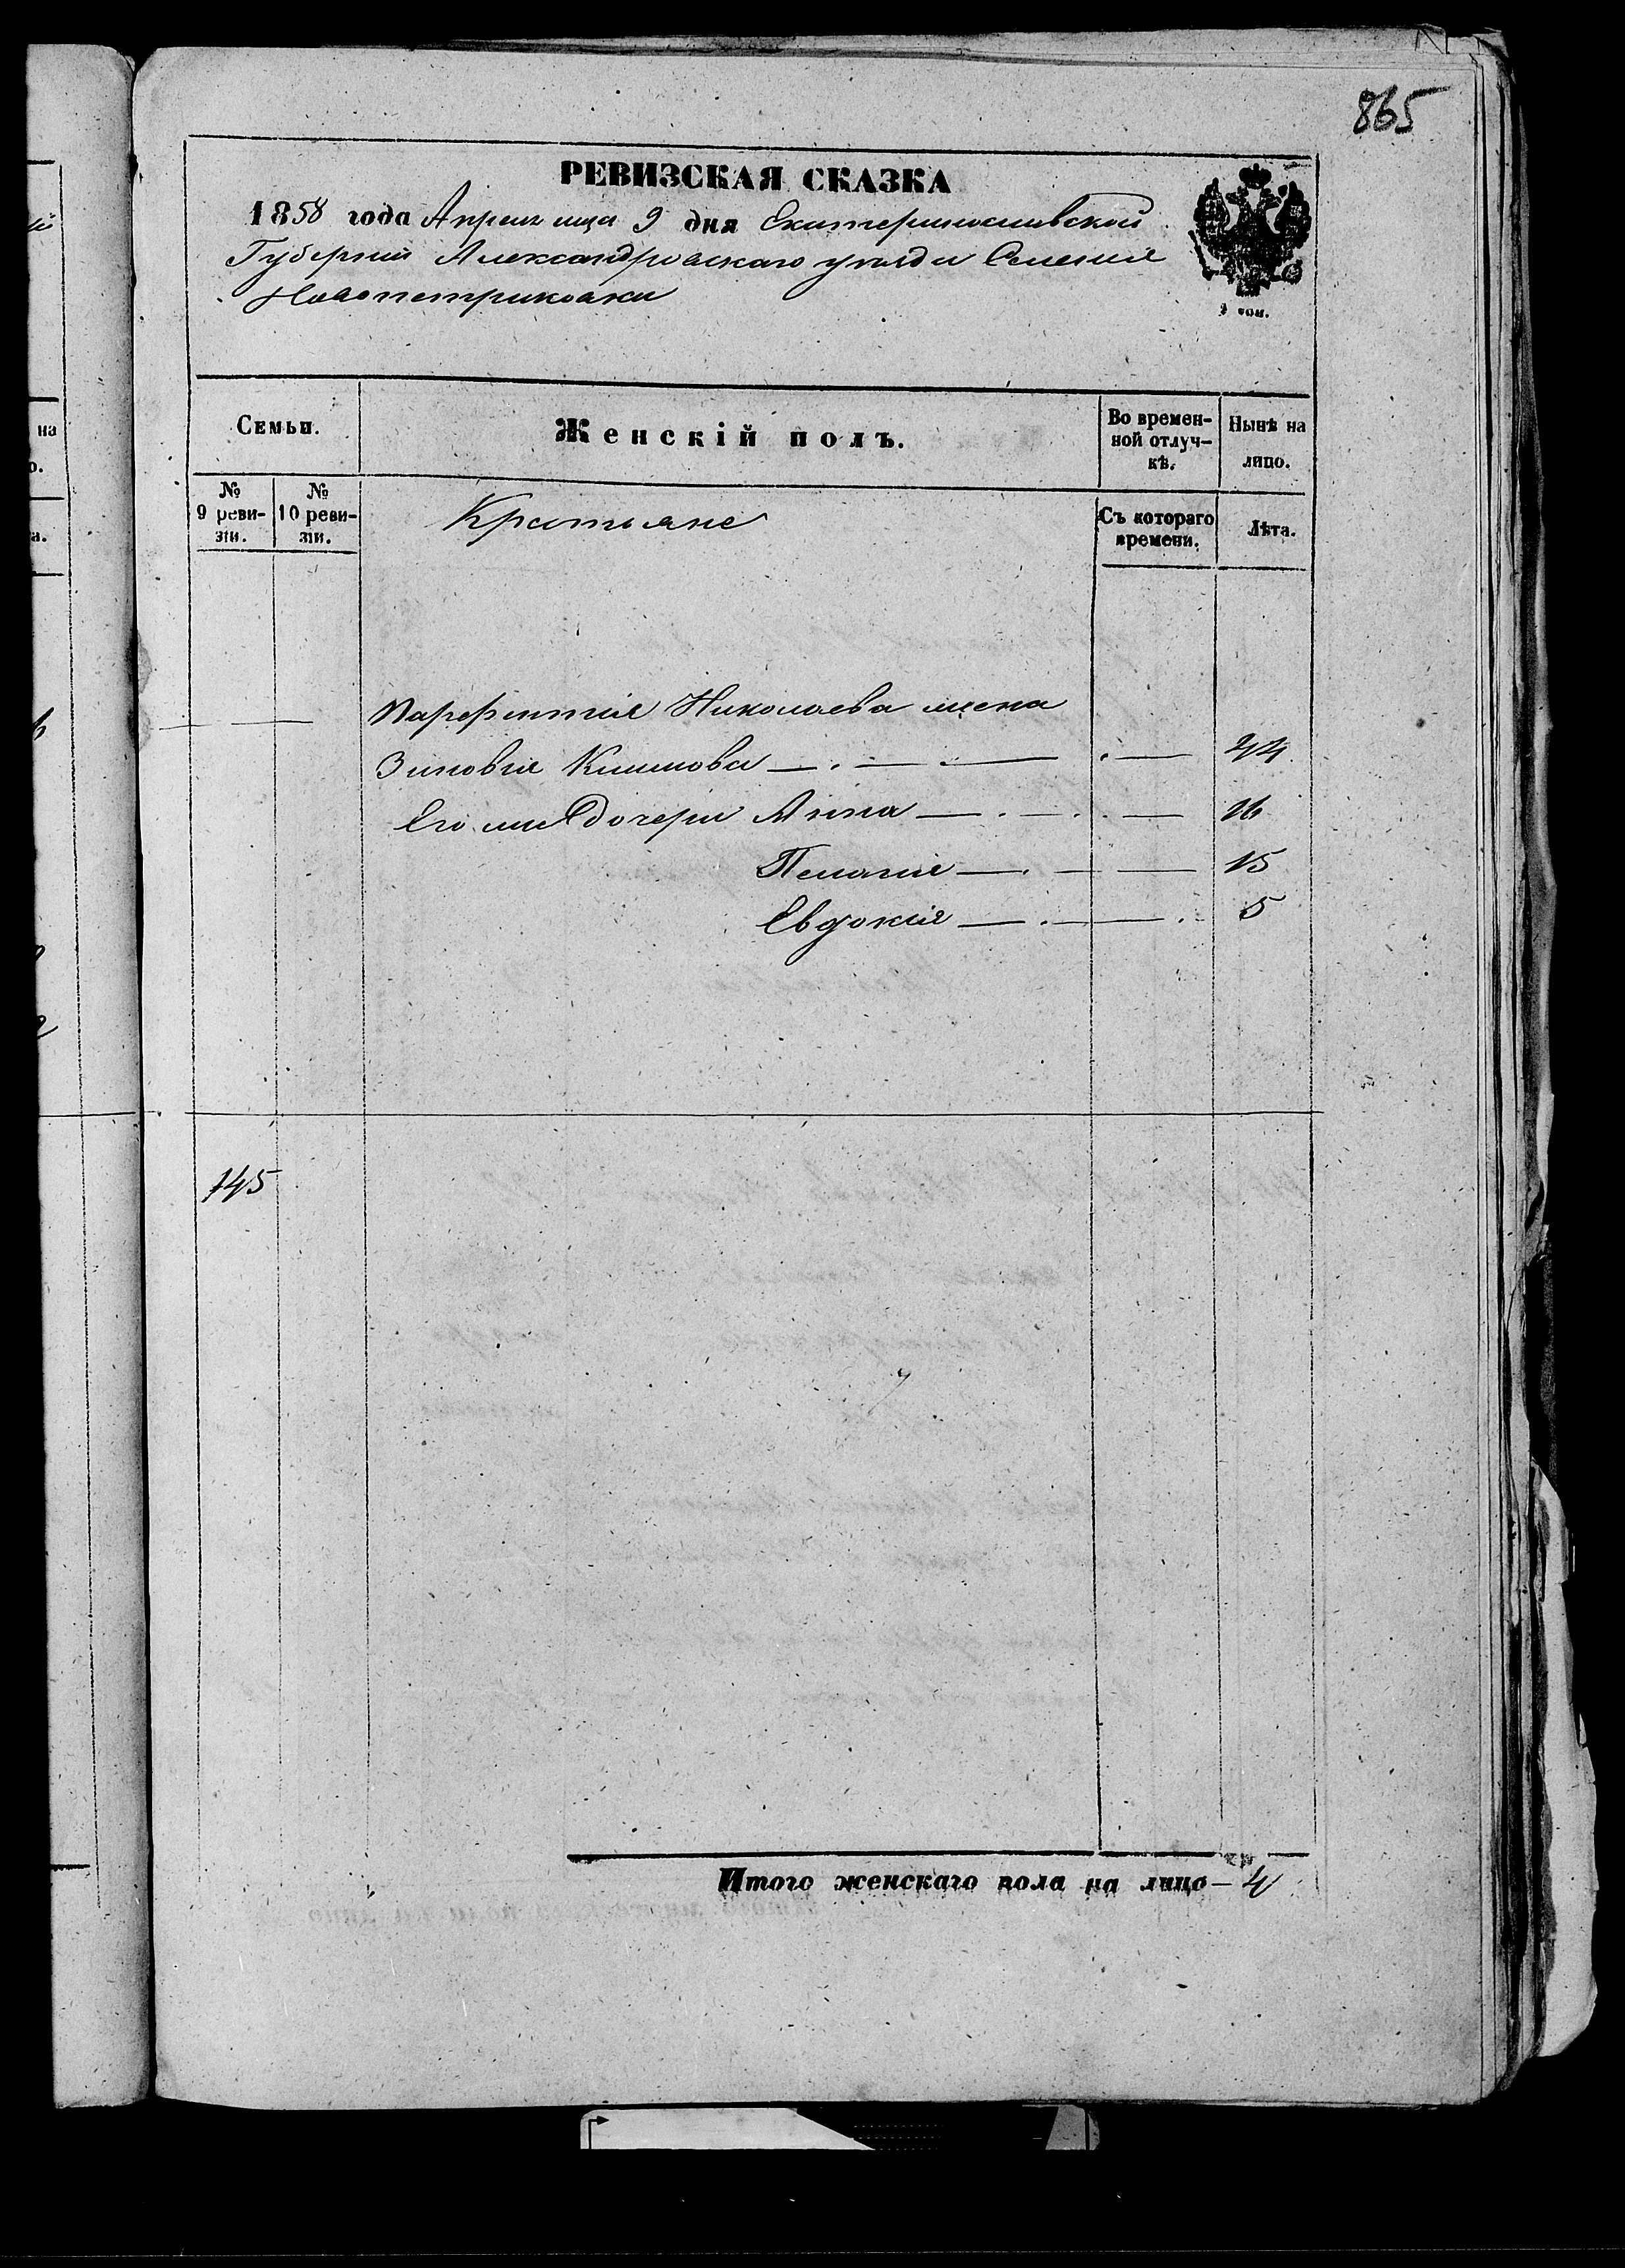 865
РЕВИЗСКАЯ СКАЗКА
1858 года Апреля мца 9 дня Екатеринославской
Губернии Александровскаго уезда Селения
Новопетриковки
Семьи.
Женскій полъ.
Во времен-
ной отлуч-
кѣ.
Нынѣ на
лицо.
№
9 реви-
зіи.
№
10 реви-
зіи.
Крестьяне
Съ котораго
времени.
Лѣта.
Парфентия Николаева жена
Зиновия Климова 44
Его же дочери Анна 16
Пелагия 15
Евдокия 5
145
Итого женскаго пола на лицо 4